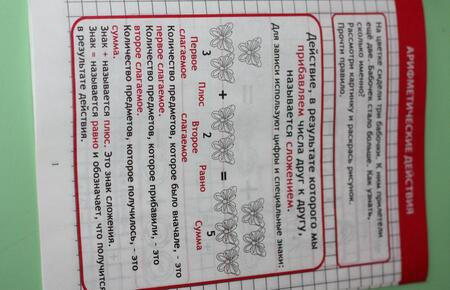 АРИФМЕТИЧЕСКИЕ ДЕЙСТВИЯ
На цветке сидели три бабочки. К ним прилетели
ещё две. Бабочек стало больше. Как узнать,
сколько именно?
Рассмотри картинку и раскрась рисунок.
Прочти правило.
Действие, в результате которого мы
прибавляем числа друг к другу,
называется сложением.
Для записи используют цифры и специальные знаки:
3 + 2 = 5
Первое Плюс Второе Равно Сумма
слагаемое слагаемое
Количество предметов, которое было вначале, - это
первое слагаемое.
Количество предметов, которое прибавили, - это
второе слагаемое.
Количество предметов, которое получилось, - это
сумма.
Знак + называется плюс. Это знак сложения.
Знак = называется равно и обозначает, что получится
в результате действия.
1